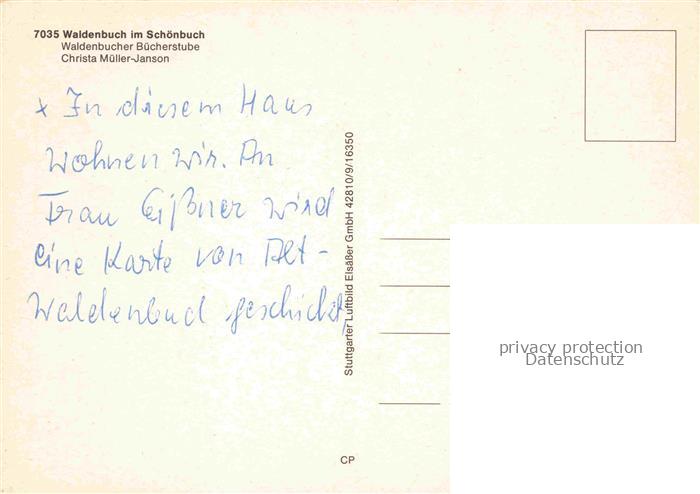 7035 Waldenbuch im Schönbuch
Waldenbucher Bücherstube
Christa Müller-Janson
x In diesem Haus
wohnen wir. An
Frau Eißner wird
eine Karte von Alt-
Waldenbuch geschickt,
Stuttgarter Luftbild Elsäßer GmbH 42810/9/16350
privacy protection
Datenschutz
CP